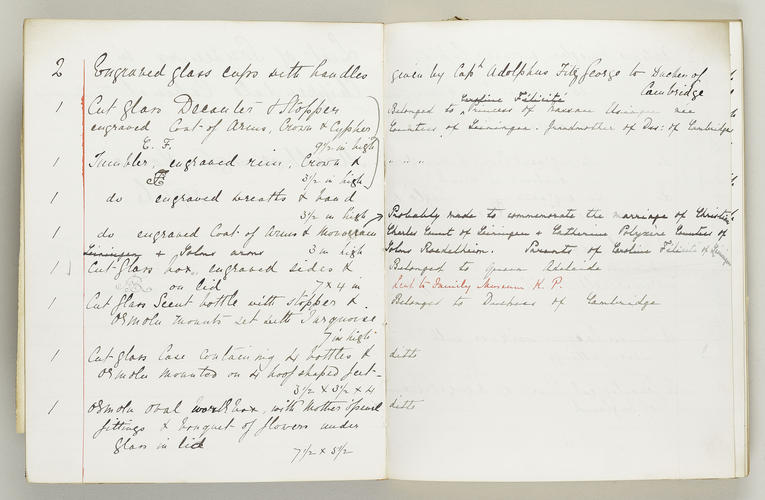 2 Engraved glass cups with handles
1 Cut Glass Decanter & Stoppers
engraved Coat of Arms, Crown & Cypher
C. F. 9½ in high
1 Tumbler, engraved rim, Crown &
3½ in high
1 do engraved wreaths & band
3½ in high
1 do engraved Coat of Arms & Monogram
Leiningen & Solms arms 3 in high
1 Cut-Glass box, engraved sides &
on lid 7 x 4 in
1 Cut Glass Scent bottle with stopper &
Ormolu mounts set with Turquoise
7 in high
1 Cut glass Case containing 4 bottles &
Ormolu mounted on 4 hoof shaped feet
3½ x 3½ x 4
1 Ormolu oval workbox, with Mother o'pearl
fittings & bouquet of flowers under
glass in lid
7½ x 5½
given by Capt Adolphus FitzGeorge to Duchess of
Cambridge
Caroline Félicité
Belonged to Princess of Nassau Usingen née
Countess of Leiningen. Grandmother of Dss: of Cambridge
" " "
Probably made to commemorate the marriage of Christian
Charles Count of Leiningen & Catherine Polyxine Countess of
Solms Roedelheim. Parents of Caroline Félicité of Leiningen
Belonged to Queen Adelaide
Lent to Family Museum K. P.
Belonged to Duchess of Cambridge
ditto
ditto